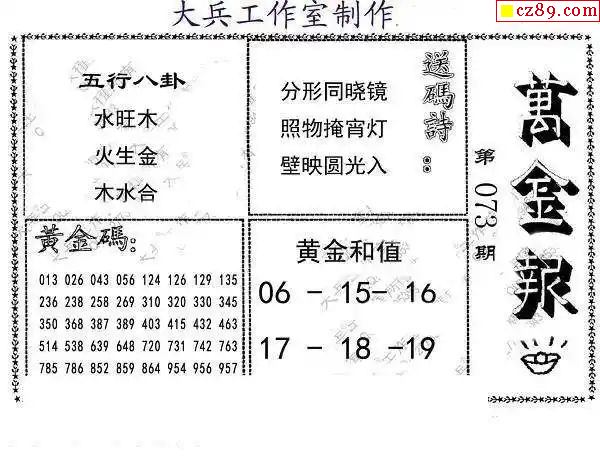 大兵工作室制作
cz89.com
五行八卦
水旺木
火生金
木水合
送碼詩:
分形同晓镜
照物掩宵灯
壁映圆光入
萬金報
第073期
黄金碼:
013 026 043 056 124 126 129 135
236 238 258 269 310 320 330 345
350 368 387 389 403 415 432 463
514 538 639 648 720 731 742 763
785 786 852 859 864 954 956 957
黄金和值
06 - 15- 16
17 - 18 -19